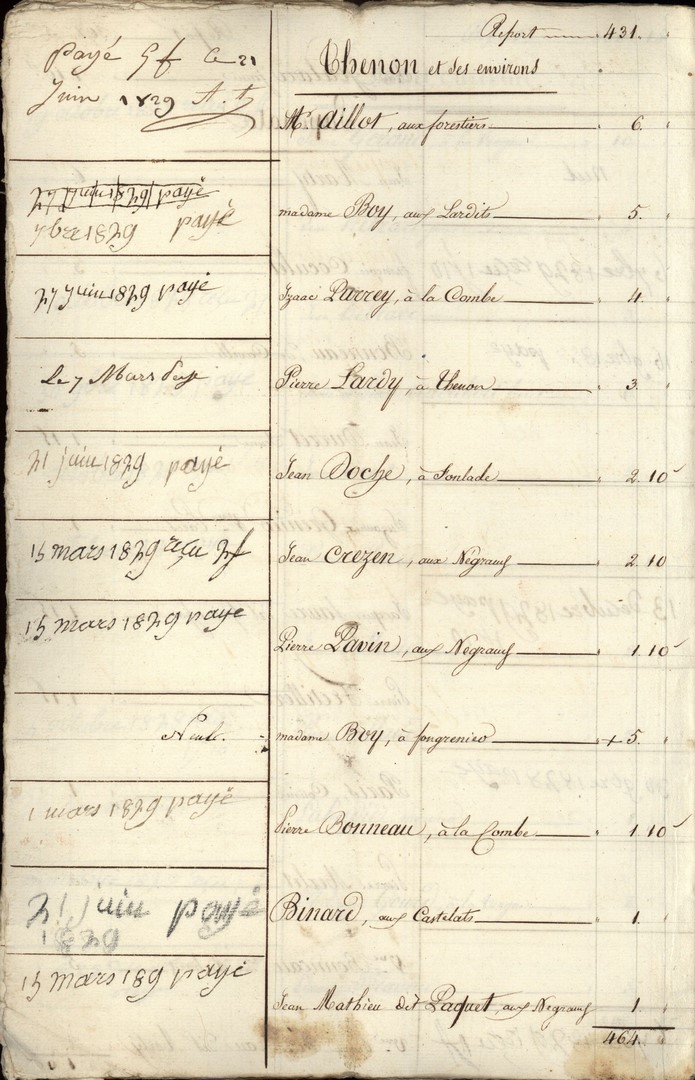 Report 431.
Thenon et ses environs
Payé 5f le 21
Juin 1829 A. L.
Mr aillot, aux forestiers 6.
27 juin 1829 payé
7bre 1829 payé
madame Boy, aux Lardits 5.
27 juin 1829 payé
Izaac Parrey, à la Combe 4.
Le 7 Mars
Pierre Lardy, à Thenon 3.
21 juin 1829 payé
Jean Doche, à Fonlade 2. 10
15 mars 1829 reçu 2f
Jean Crezen, aux Négrauf 2. 10
15 mars 1829 payé
Pierre Pavin, aux Négrauf 1. 10
Neut.
madame Boy, à fongrenieo + 5.
1 mars 1829 payé
Pierre Bonneau, à la Combe 1. 10
21 juin payé
1829
Binard, aux Castelats 1.
15 mars 189 payé
Jean Mathieu dit Paquet, aux Negrauf 1.
464.